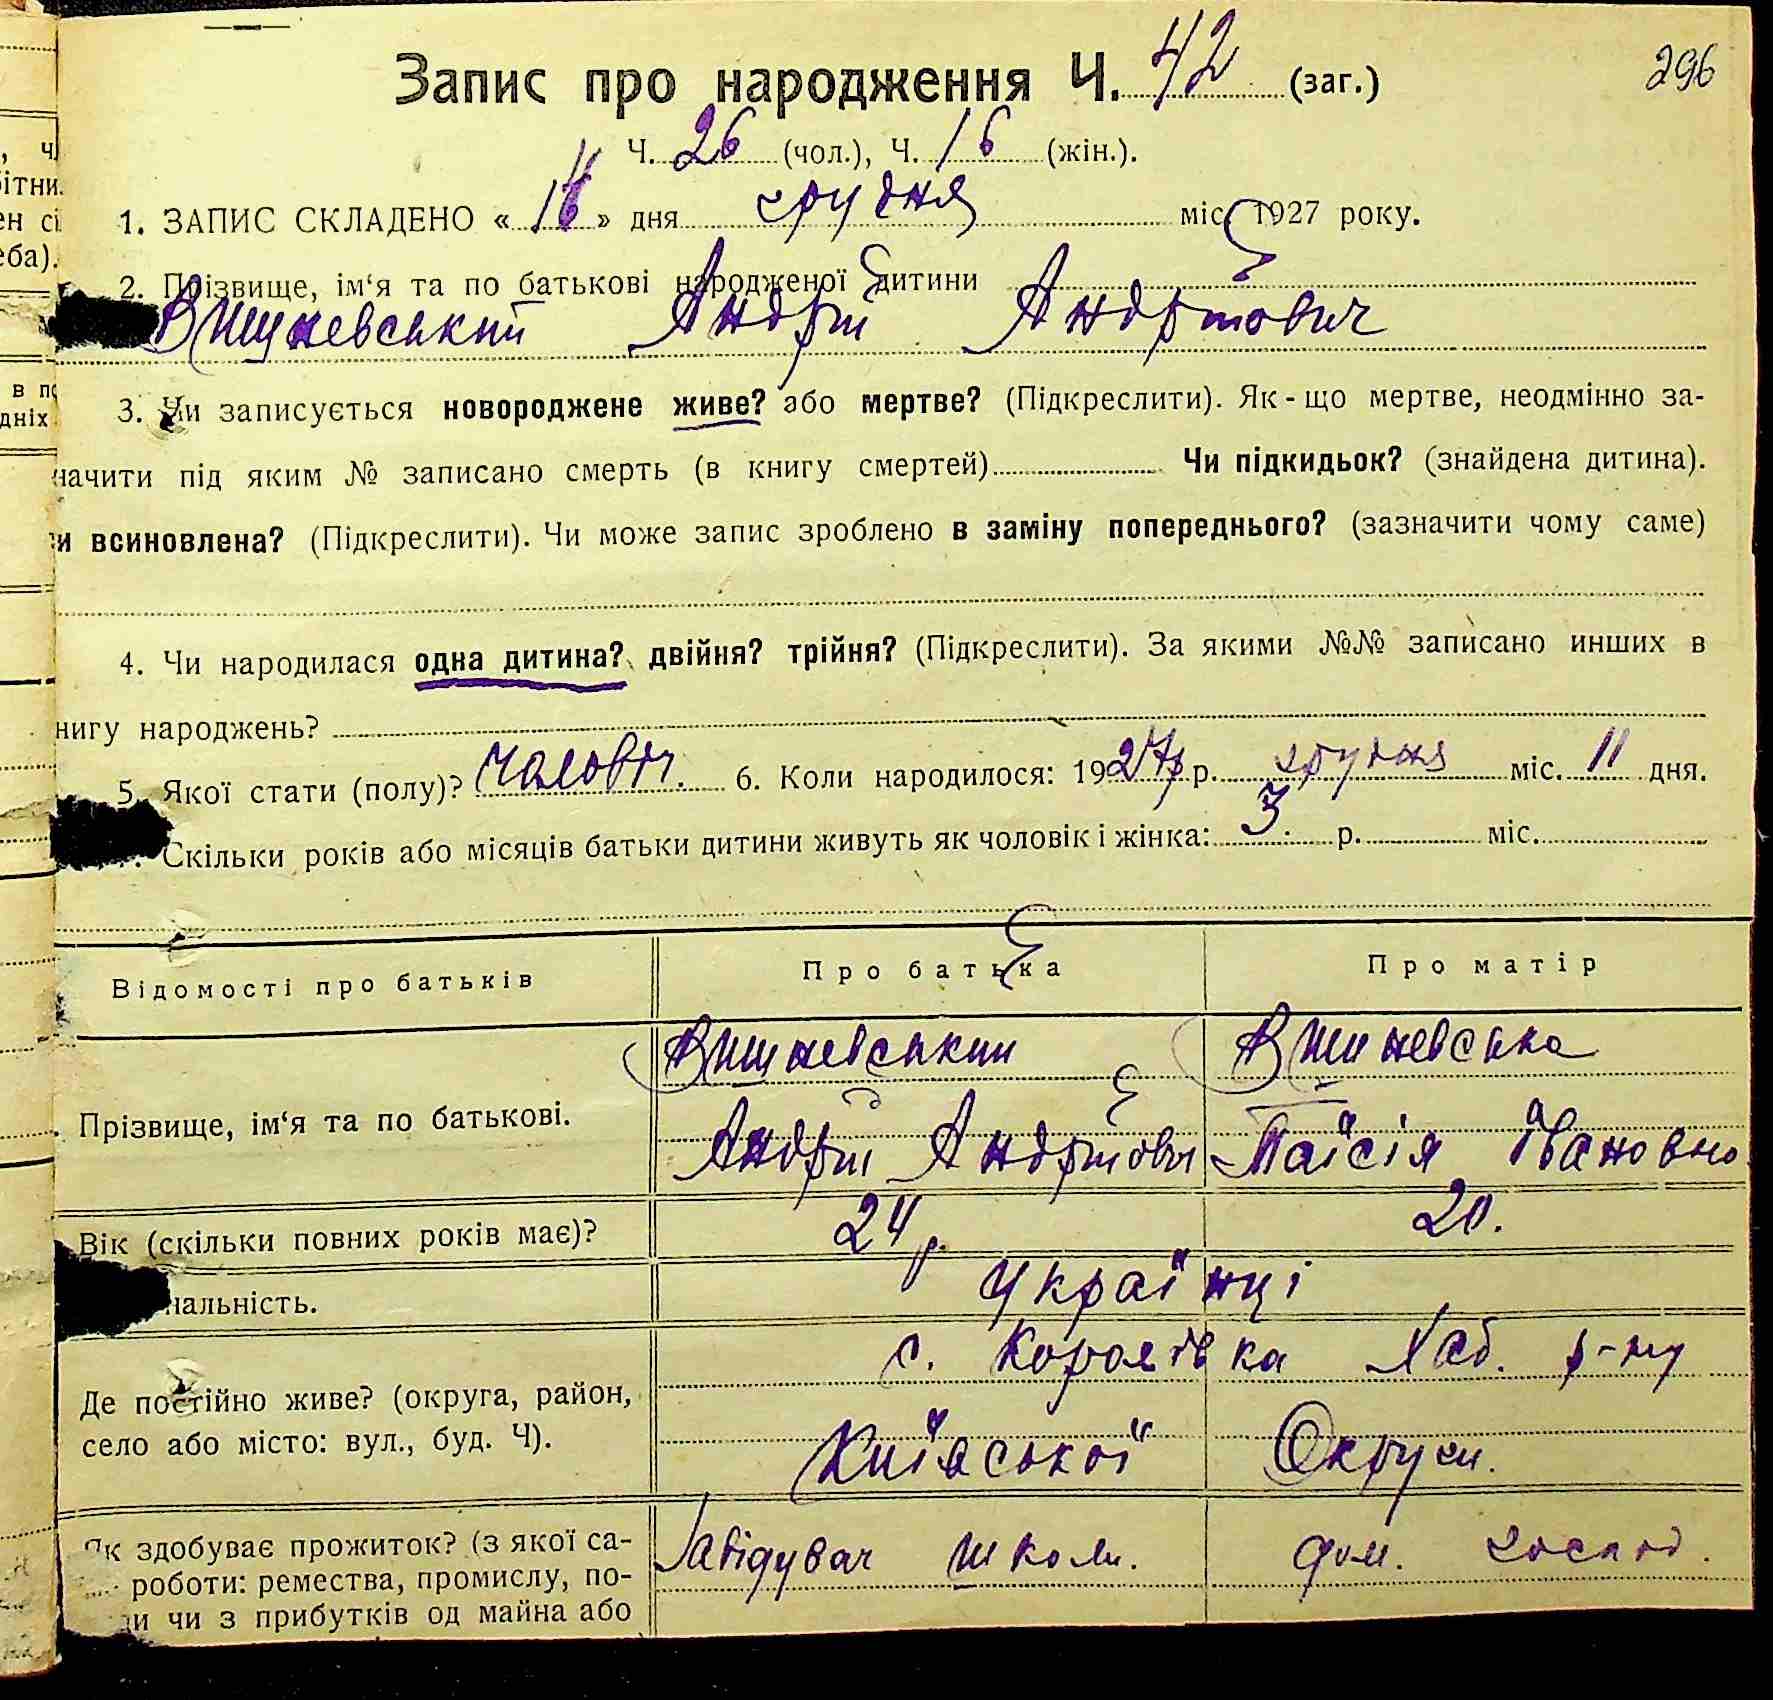 296
Запис про народження Ч. 42 (заг.)
Ч. 26 (чол.), Ч. 16 (жін.).
1. ЗАПИС СКЛАДЕНО « » дня грудня міс. 1927 року.
2. Прізвище, ім‘я та по батькові народженої дитини
Вишневський Андрій Андрійович
3. Чи записується новороджене живе? або мертве? (Підкреслити). Як-що мертве, неодмінно за-
начити під яким № записано смерть (в книгу смертей) Чи підкидьок? (знайдена дитина).
и всиновлена? (Підкреслити). Чи може запис зроблено в заміну попереднього? (зазначити чому саме)
4. Чи народилася одна дитина? двійня? трійня? (Підкреслити). За якими №№ записано инших в
нигу народжень?
5. Якої стати (полу)? чоловіч. 6. Коли народилося: 1927 р. грудня міс. 11 дня.
Скільки років або місяців батьки дитини живуть як чоловік і жінка: 3 р. міс.
Відомості про батьків Про батька Про матір
Вишневський Вишневська
Прізвище, ім‘я та по батькові. Андрій Андрійович Таїсія Івановна
Вік (скільки повних років має)? 24 р. 20.
нальність. Українці
с. Королівка Хаб. р-ну
Де постійно живе? (округа, район,
село або місто: вул., буд. Ч). Київської Округи.
Як здобуває прожиток? (з якої са- Завідувач школи. дом. господ.
роботи: ремества, промислу, по-
ди чи з прибутків од майна або